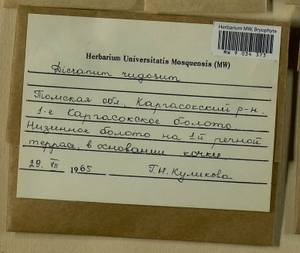 Herbarium MW, Bryophyta
MW 9 034 373
Herbarium Universitatis Mosquensis (MW)
Dicranum rugosum
Томская обл., Каргасокский р-н.
1-е Каргасокское болото
Низинное болото на 1й речной
террасе, в основании кочки.
29 VII 1965 Г.Н. Куликова